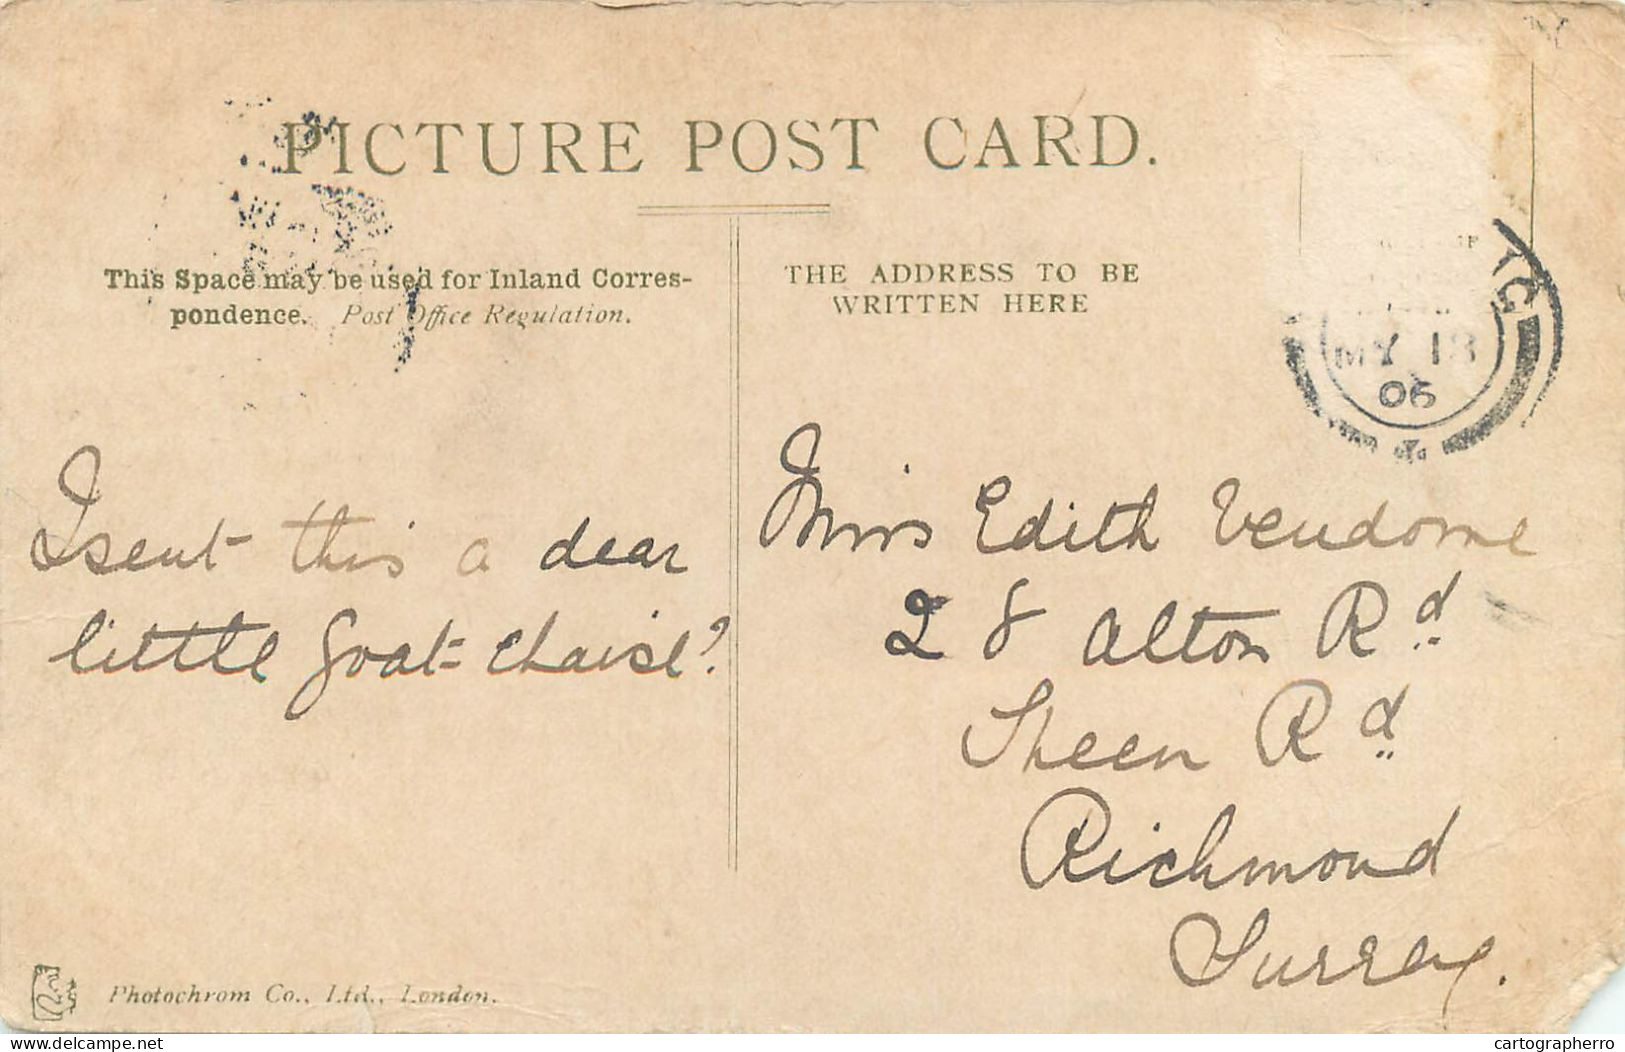 PICTURE POST CARD.
This Space may be used for Inland Corres-
pondence. Post Office Regulation.
THE ADDRESS TO BE
WRITTEN HERE
MY 18
06
Isent this a dear
little goat-chaise?
Miss Edith Vendome
28 Alton Rd
Sheen Rd
Richmond
Surrey.
Photochrom Co., Ltd., London.
delcampe.net
cartographerro